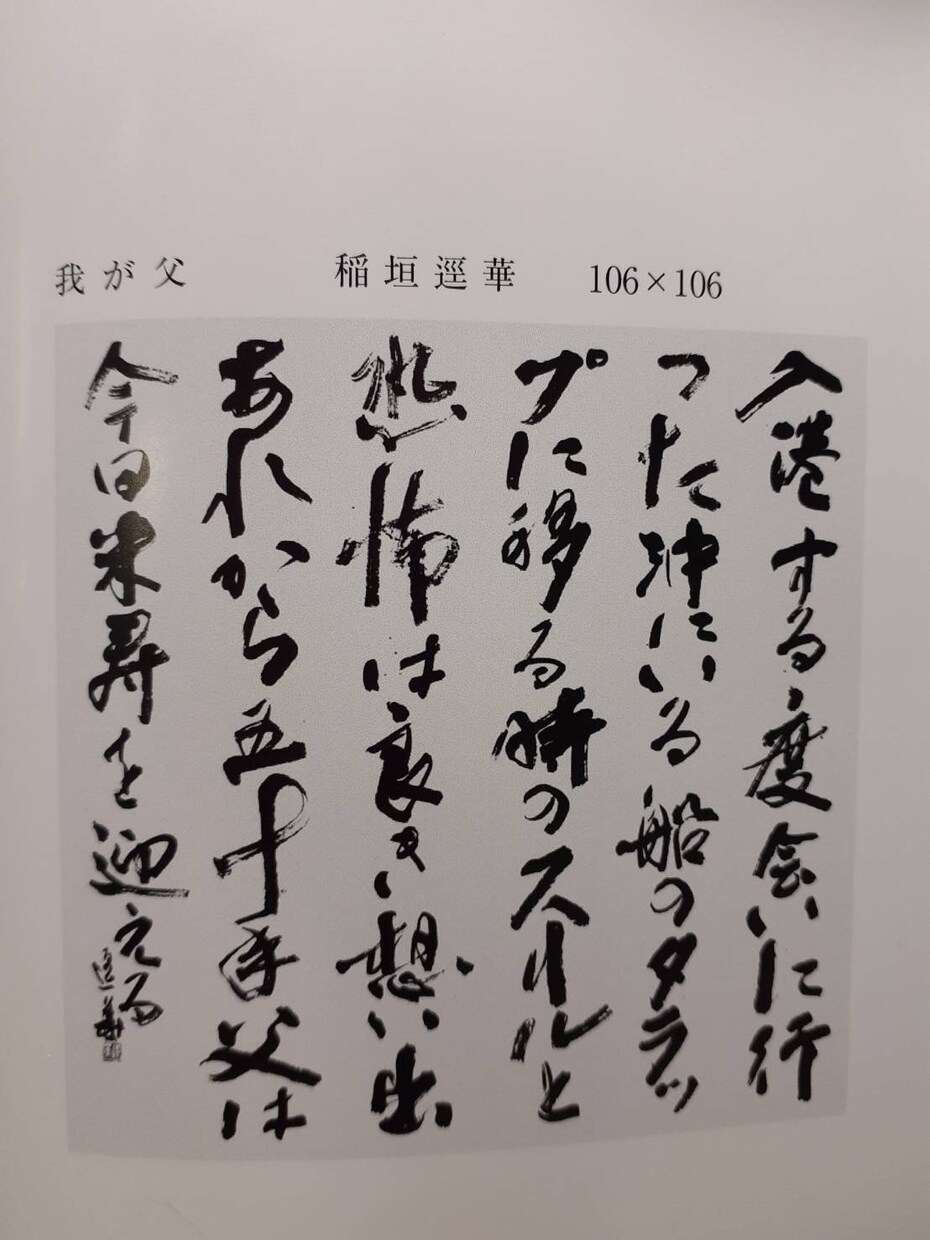 我が父 稲垣逕華 106×106
入港する度会いに行
った沖にいる船のタラッ
プに移る時のスリルと
恐怖は良き想い出
あれから五十年父は
今日米寿を迎える
逕華